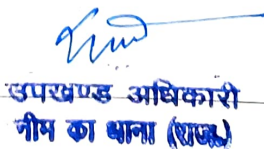 उपखण्ड अधिकारी
नीम का थाना (राज०)